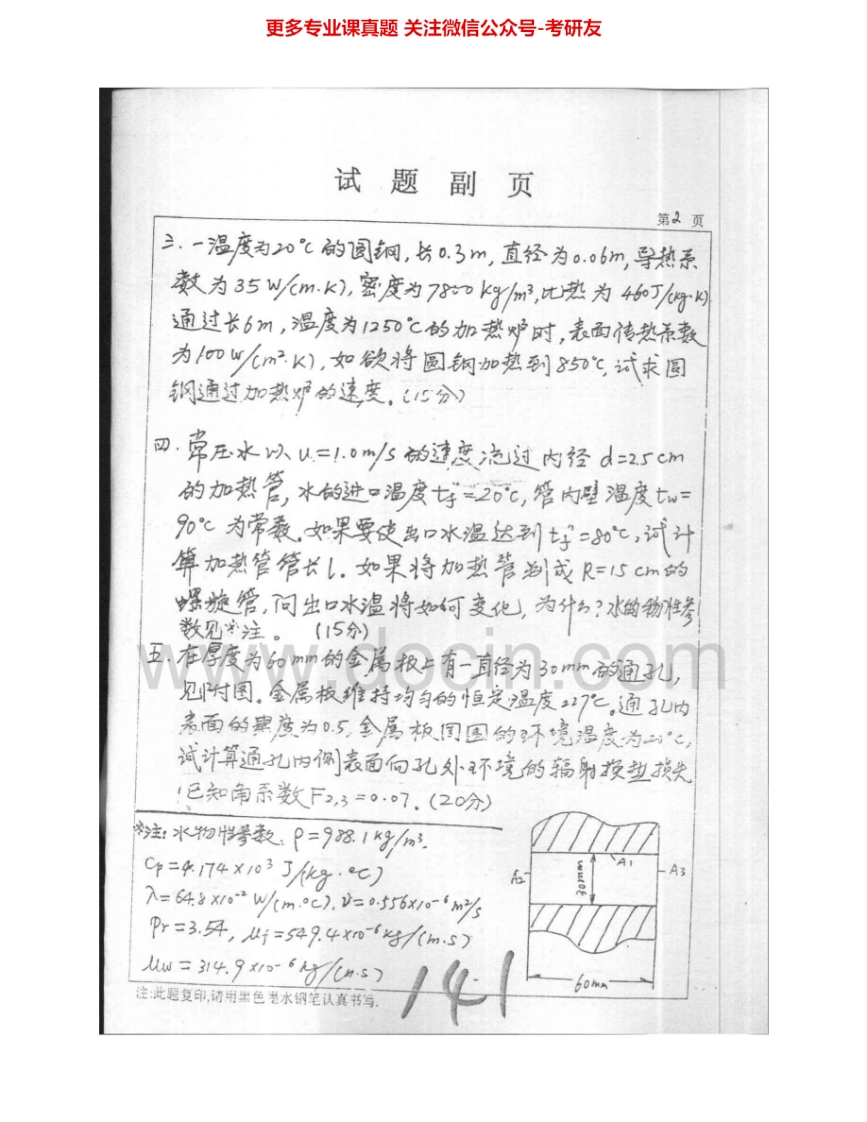 更多专业课真题 关注微信公众号-考研友
试 题 副 页
第2页
三.一温度为20°C的圆钢,长0.3m,直径为0.06m,导热系
数为35W/(m.K),密度为7800kg/m³,比热为460J/(kg.K)
通过长6m,温度为1250°C的加热炉时,表面传热系数
为100W/(m².K),如欲将圆钢加热到850°C,试求圆
钢通过加热炉的速度。(15分)
四.常压水以u=1.0m/s的速度流过内径d=2.5cm
的加热管,水的进口温度tf'=20°C,管内壁温度tw=
90°C为常数。如果要使出口水温达到tf"=80°C,试计
算加热管管长l.如果将加热管制成R=15cm的
螺旋管,问出口水温将如何变化,为什么?水的物性参
数见*注。 (15分)
五.在厚度为60mm的金属板上有一直径为30mm的通孔,
见附图。金属板维持均匀的恒定温度227°C。通孔内
表面的黑度为0.5,金属板周围的环境温度为 °C,
试计算通孔内侧表面向孔外环境的辐射换热损失
已知角系数F2,3=0.07.(20分)
*注:水物性参数:ρ=988.1kg/m³.
Cp=4.174×10³J/(kg.°C)
λ=64.8×10⁻²W/(m.°C).ν=0.556×10⁻⁶m²/s
Pr=3.54,μf=549.4×10⁻⁶kg/(m.s)
μw=314.9×10⁻⁶kg/(m.s)
A1
A2
A3
30mm
60mm
注:此题复印,请用黑色墨水钢笔认真书写.
141
www.docin.com